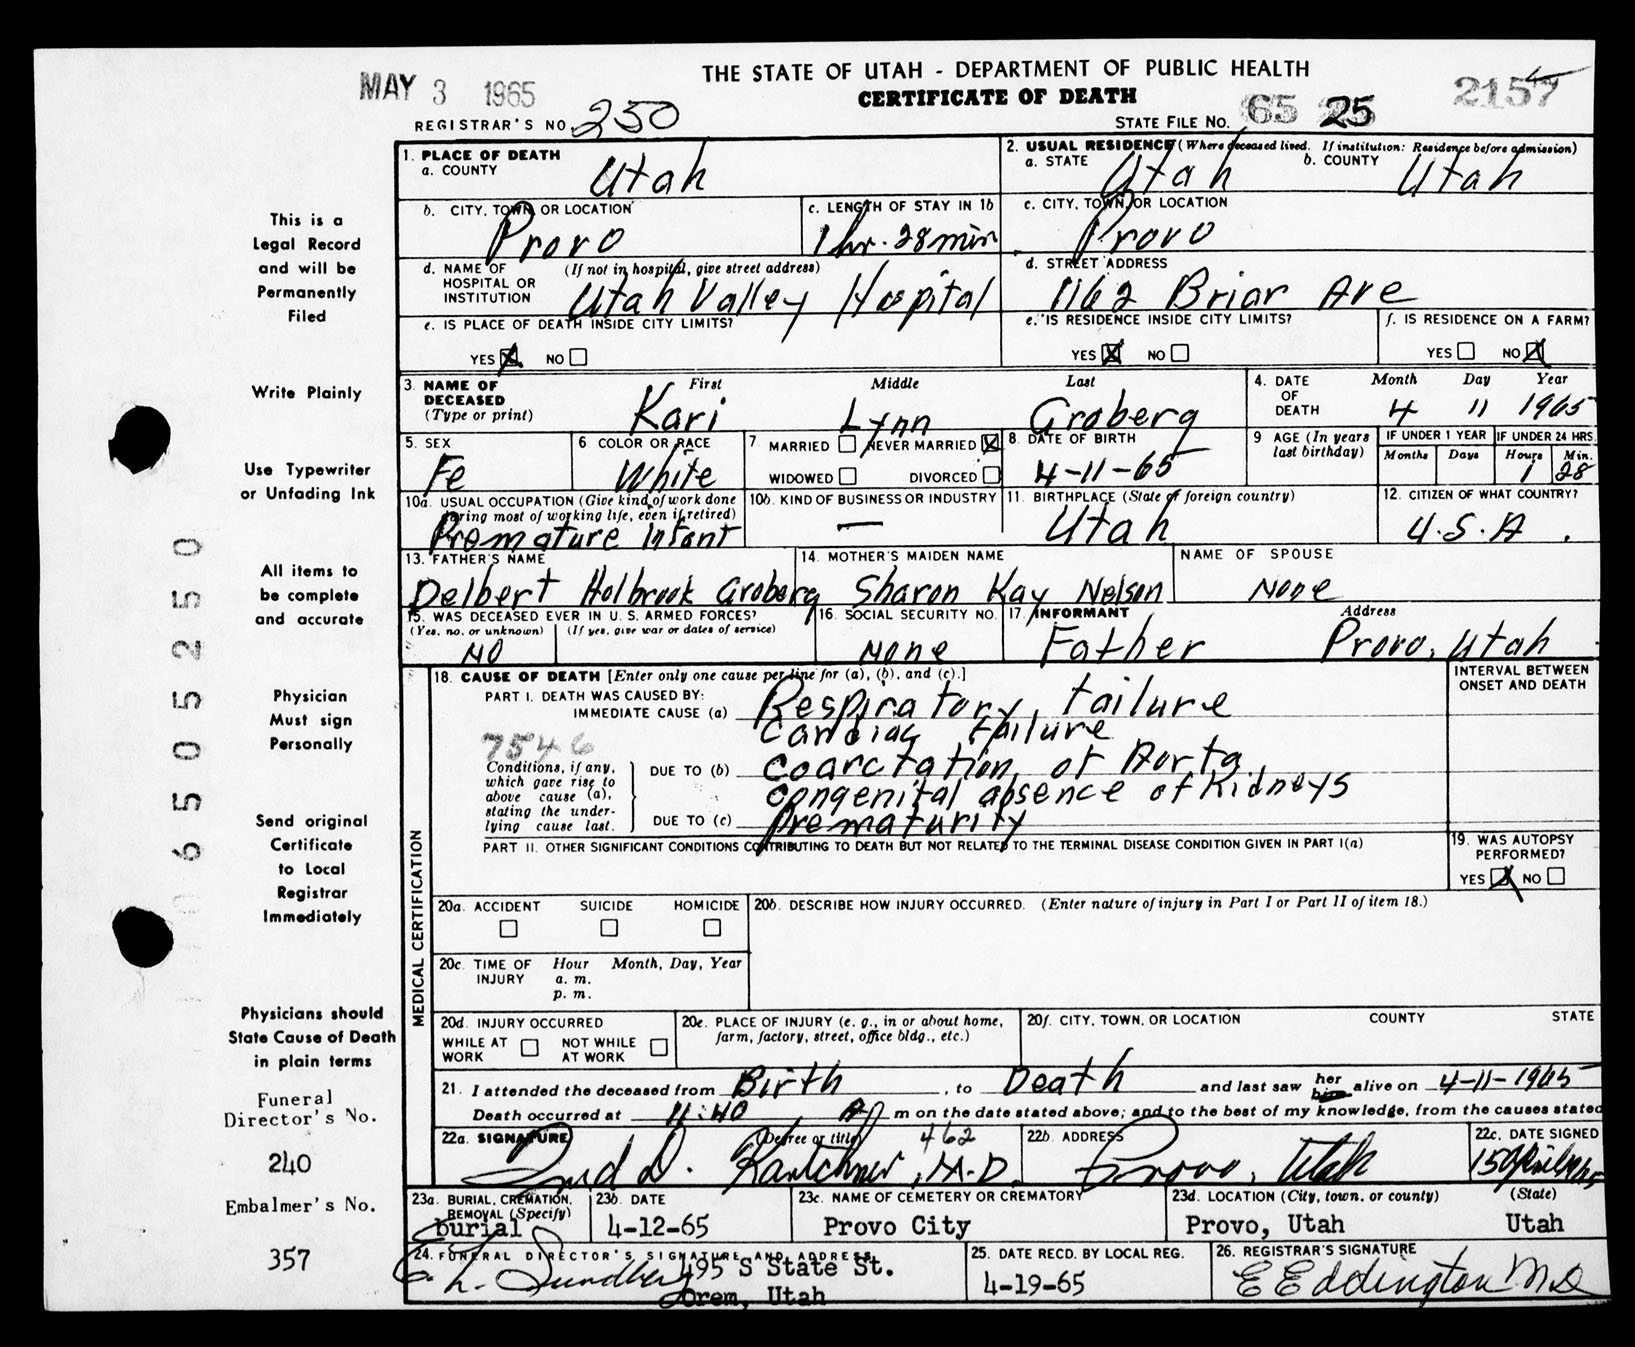 THE STATE OF UTAH - DEPARTMENT OF PUBLIC HEALTH
CERTIFICATE OF DEATH
MAY 3 1965
2157
REGISTRAR'S NO. 250
STATE FILE NO. 65 25
1. PLACE OF DEATH
a. COUNTY Utah
2. USUAL RESIDENCE (Where deceased lived. If institution: Residence before admission)
a. STATE Utah b. COUNTY Utah
b. CITY, TOWN, OR LOCATION Provo
c. LENGTH OF STAY IN 1b 1 hr. 28 min
c. CITY, TOWN, OR LOCATION Provo
d. NAME OF HOSPITAL OR INSTITUTION (If not in hospital, give street address) Utah Valley Hospital
d. STREET ADDRESS 1162 Briar Ave
e. IS PLACE OF DEATH INSIDE CITY LIMITS?
YES X NO
e. IS RESIDENCE INSIDE CITY LIMITS?
YES X NO
f. IS RESIDENCE ON A FARM?
YES NO X
3. NAME OF DECEASED (Type or print)
First Middle Last
Kari Lynn Groberg
4. DATE OF DEATH
Month Day Year
4 11 1965
5. SEX Fe
6 COLOR OR RACE White
7 MARRIED NEVER MARRIED X
WIDOWED DIVORCED
8. DATE OF BIRTH 4-11-65
9 AGE (In years last birthday)
IF UNDER 1 YEAR
Months Days
IF UNDER 24 HRS.
Hours 1 Min. 28
10a. USUAL OCCUPATION (Give kind of work done during most of working life, even if retired)
Premature Infant
10b. KIND OF BUSINESS OR INDUSTRY —
11. BIRTHPLACE (State of foreign country) Utah
12. CITIZEN OF WHAT COUNTRY? U.S.A.
13. FATHER'S NAME Delbert Holbrook Groberg
14. MOTHER'S MAIDEN NAME Sharon Kay Nelson
NAME OF SPOUSE None
15. WAS DECEASED EVER IN U. S. ARMED FORCES?
(Yes, no, or unknown) (If yes, give war or dates of service)
NO
16. SOCIAL SECURITY NO. None
17. INFORMANT Father
Address Provo, Utah
18. CAUSE OF DEATH [Enter only one cause per line for (a), (b), and (c).]
INTERVAL BETWEEN ONSET AND DEATH
PART I. DEATH WAS CAUSED BY:
IMMEDIATE CAUSE (a) Respiratory failure
Cardiac failure
7546
Conditions, if any, which gave rise to above cause (a), stating the underlying cause last.
DUE TO (b) Coarctation of Aorta
Congenital absence of Kidneys
DUE TO (c) Prematurity
PART II. OTHER SIGNIFICANT CONDITIONS CONTRIBUTING TO DEATH BUT NOT RELATED TO THE TERMINAL DISEASE CONDITION GIVEN IN PART I(a)
19. WAS AUTOPSY PERFORMED?
YES X NO
MEDICAL CERTIFICATION
20a. ACCIDENT SUICIDE HOMICIDE
20b. DESCRIBE HOW INJURY OCCURRED. (Enter nature of injury in Part I or Part II of item 18.)
20c. TIME OF INJURY Hour a. m. p. m. Month, Day, Year
20d. INJURY OCCURRED
WHILE AT WORK NOT WHILE AT WORK
20e. PLACE OF INJURY (e. g., in or about home, farm, factory, street, office bldg., etc.)
20f. CITY, TOWN, OR LOCATION COUNTY STATE
21. I attended the deceased from Birth, to Death and last saw her him alive on 4-11-1965
Death occurred at 11:40 A m on the date stated above; and to the best of my knowledge, from the causes stated
22a. SIGNATURE (Degree or title) 462
D. Kartchner, M.D.
22b. ADDRESS Provo, Utah
22c. DATE SIGNED 15 April 1965
23a. BURIAL, CREMATION, REMOVAL (Specify) burial
23b. DATE 4-12-65
23c. NAME OF CEMETERY OR CREMATORY Provo City
23d. LOCATION (City, town, or county) (State)
Provo, Utah Utah
24. FUNERAL DIRECTOR'S SIGNATURE AND ADDRESS
E. L. Sundberg 495 S State St.
Orem, Utah
25. DATE RECD. BY LOCAL REG. 4-19-65
26. REGISTRAR'S SIGNATURE
E Eddington MD
This is a
Legal Record
and will be
Permanently
Filed
Write Plainly
Use Typewriter
or Unfading Ink
All items to
be complete
and accurate
Physician
Must sign
Personally
Send original
Certificate
to Local
Registrar
Immediately
Physicians should
State Cause of Death
in plain terms
Funeral
Director's No.
240
Embalmer's No.
357
6505250